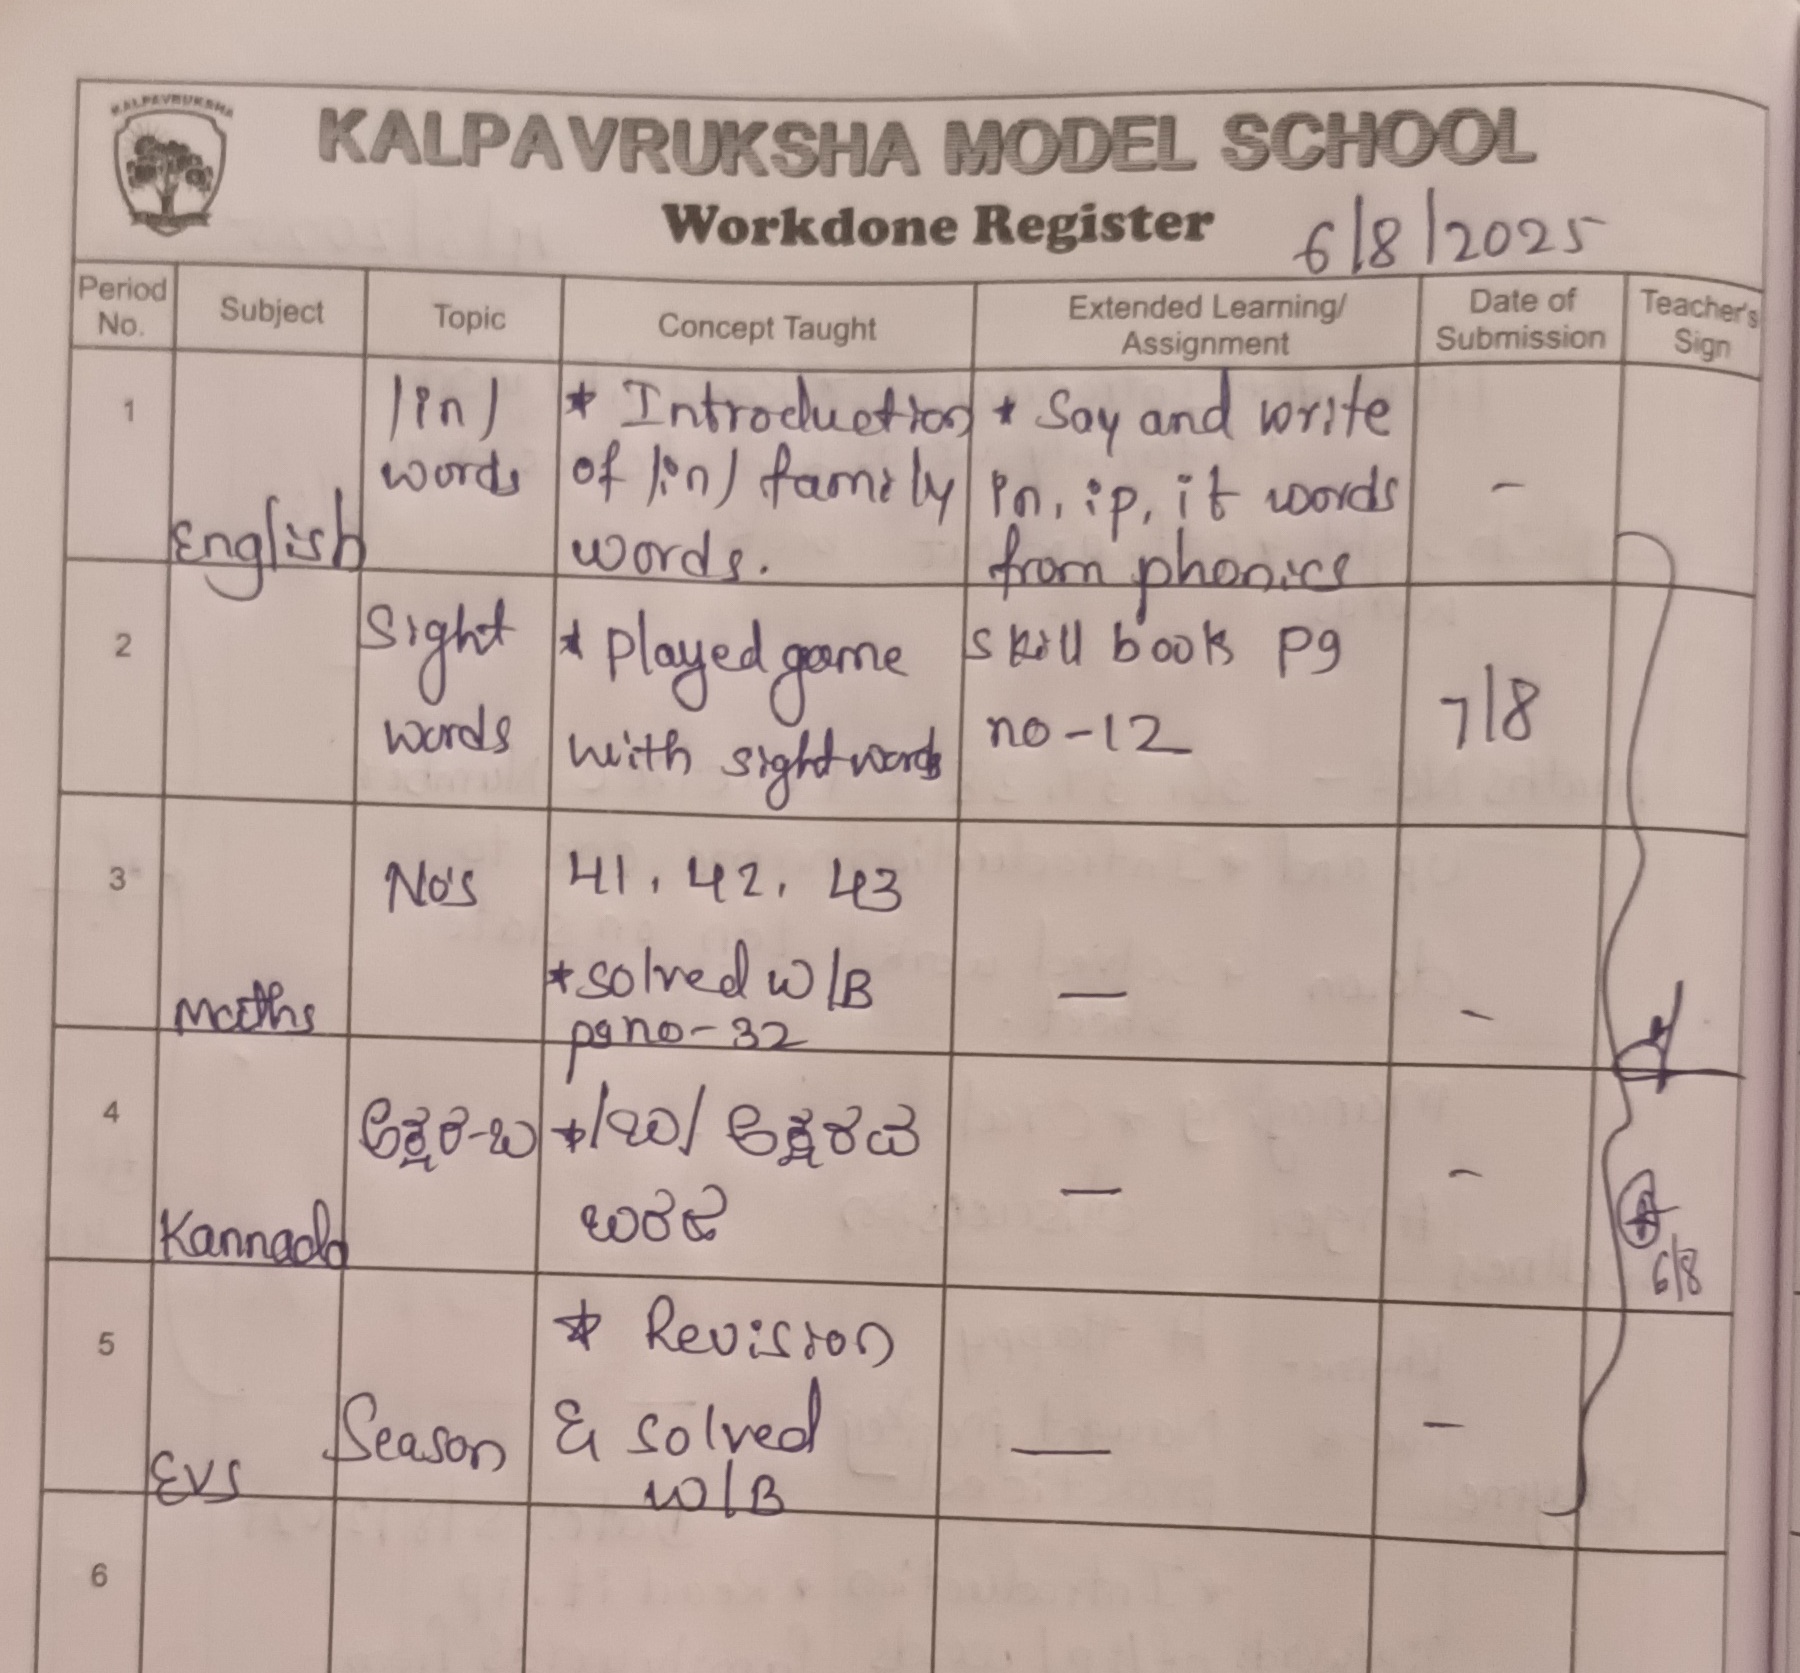 KALPAVRUKSHA
KALPAVRUKSHA MODEL SCHOOL
Workdone Register 6/8/2025
Period No. Subject Topic Concept Taught Extended Learning/ Assignment Date of Submission Teacher's Sign
1 English /in/ words * Introduction of /in/ family words. * Say and write in, ip, it words from phonics -
2 Sight words * played game with sight words skill book pg no-12 7/8
3 Maths No's 41, 42, 43 * solved W/B pg no-32 — -
4 Kannada ಅಕ್ಷರ-ಬ * /ಬ/ ಅಕ್ಷರದ ಬರಹ — -
6/8
5 EVS Season * Revision & solved W/B — -
6